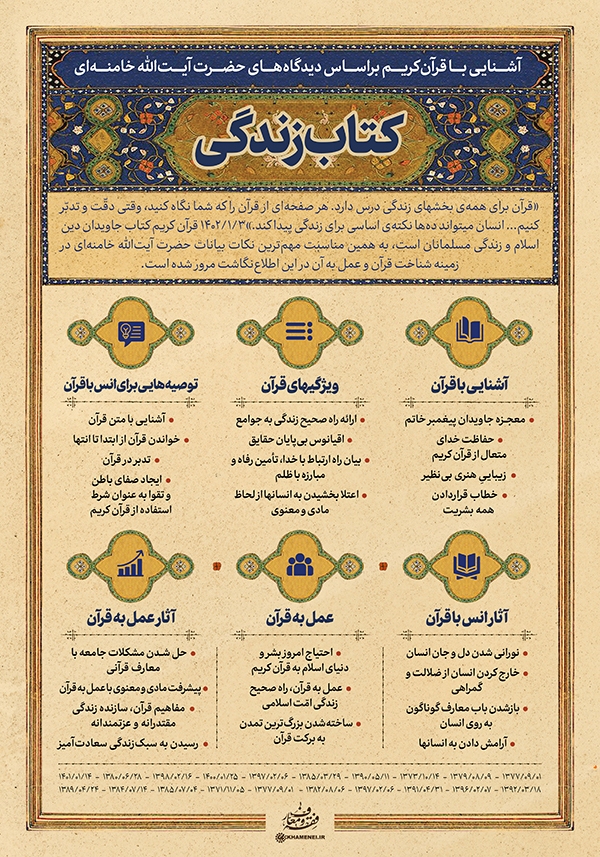 آشنایی با قرآن کریم براساس دیدگاه‌های حضرت آیت‌الله خامنه‌ای
کتاب زندگی
«قرآن برای همه‌ی بخشهای زندگی درس دارد. هر صفحه‌ای از قرآن را که شما نگاه کنید، وقتی دقّت و تدبّر
کنیم... انسان میتواند ده‌ها نکته‌ی اساسی برای زندگی پیدا کند.» ۱۴۰۲/۱/۳ قرآن کریم کتاب جاویدان دین
اسلام و زندگی مسلمانان است، به همین مناسبت مهم‌ترین نکات بیانات حضرت آیت‌الله خامنه‌ای در
زمینه شناخت قرآن و عمل به آن در این اطلاع‌نگاشت مرور شده است.
آشنایی با قرآن
معجزه جاویدان پیغمبر خاتم
حفاظت خدای
متعال از قرآن کریم
زیبایی هنری بی‌نظیر
خطاب قراردادن
همه بشریت
ویژگیهای قرآن
ارائه راه صحیح زندگی به جوامع
اقیانوس بی‌پایان حقایق
بیان راه ارتباط با خدا، تأمین رفاه و
مبارزه با ظلم
اعتلا بخشیدن به انسانها از لحاظ
مادی و معنوی
توصیه‌هایی برای انس با قرآن
آشنایی با متن قرآن
خواندن قرآن از ابتدا تا انتها
تدبر در قرآن
ایجاد صفای باطن
و تقوا به عنوان شرط
استفاده از قرآن کریم
آثار انس با قرآن
نورانی شدن دل و جان انسان
خارج کردن انسان از ضلالت و
گمراهی
بازشدن باب معارف گوناگون
به روی انسان
آرامش دادن به انسانها
عمل به قرآن
احتیاج امروز بشر و
دنیای اسلام به قرآن کریم
عمل به قرآن، راه صحیح
زندگی امّت اسلامی
ساخته‌شدن بزرگ‌ترین تمدن
به برکت قرآن
آثار عمل به قرآن
حل شدن مشکلات جامعه با
معارف قرآنی
پیشرفت مادی و معنوی با عمل به قرآن
مفاهیم قرآن، سازنده زندگی
مقتدرانه و عزتمندانه
رسیدن به سبک زندگی سعادت‌آمیز
۱۳۷۷/۰۹/۰۱ - ۱۳۷۹/۰۸/۰۹ - ۱۳۷۳/۱۰/۱۴ - ۱۳۹۰/۰۵/۱۱ - ۱۳۸۵/۰۳/۲۹ - ۱۳۹۷/۰۲/۰۶ - ۱۴۰۰/۰۱/۲۵ - ۱۳۹۸/۰۲/۱۶ - ۱۳۸۰/۰۶/۲۸ - ۱۴۰۱/۰۱/۱۴
۱۳۹۲/۰۳/۱۸ - ۱۳۹۶/۰۲/۰۷ - ۱۳۹۱/۰۴/۳۱ - ۱۳۹۷/۰۲/۰۶ - ۱۳۸۲/۰۸/۰۶ - ۱۳۷۷/۰۹/۰۱ - ۱۳۷۱/۱۱/۰۵ - ۱۳۸۵/۰۷/۰۴ - ۱۳۸۴/۰۷/۱۴ - ۱۳۸۹/۰۴/۲۴
فقه و معارف
KHAMENEI.IR